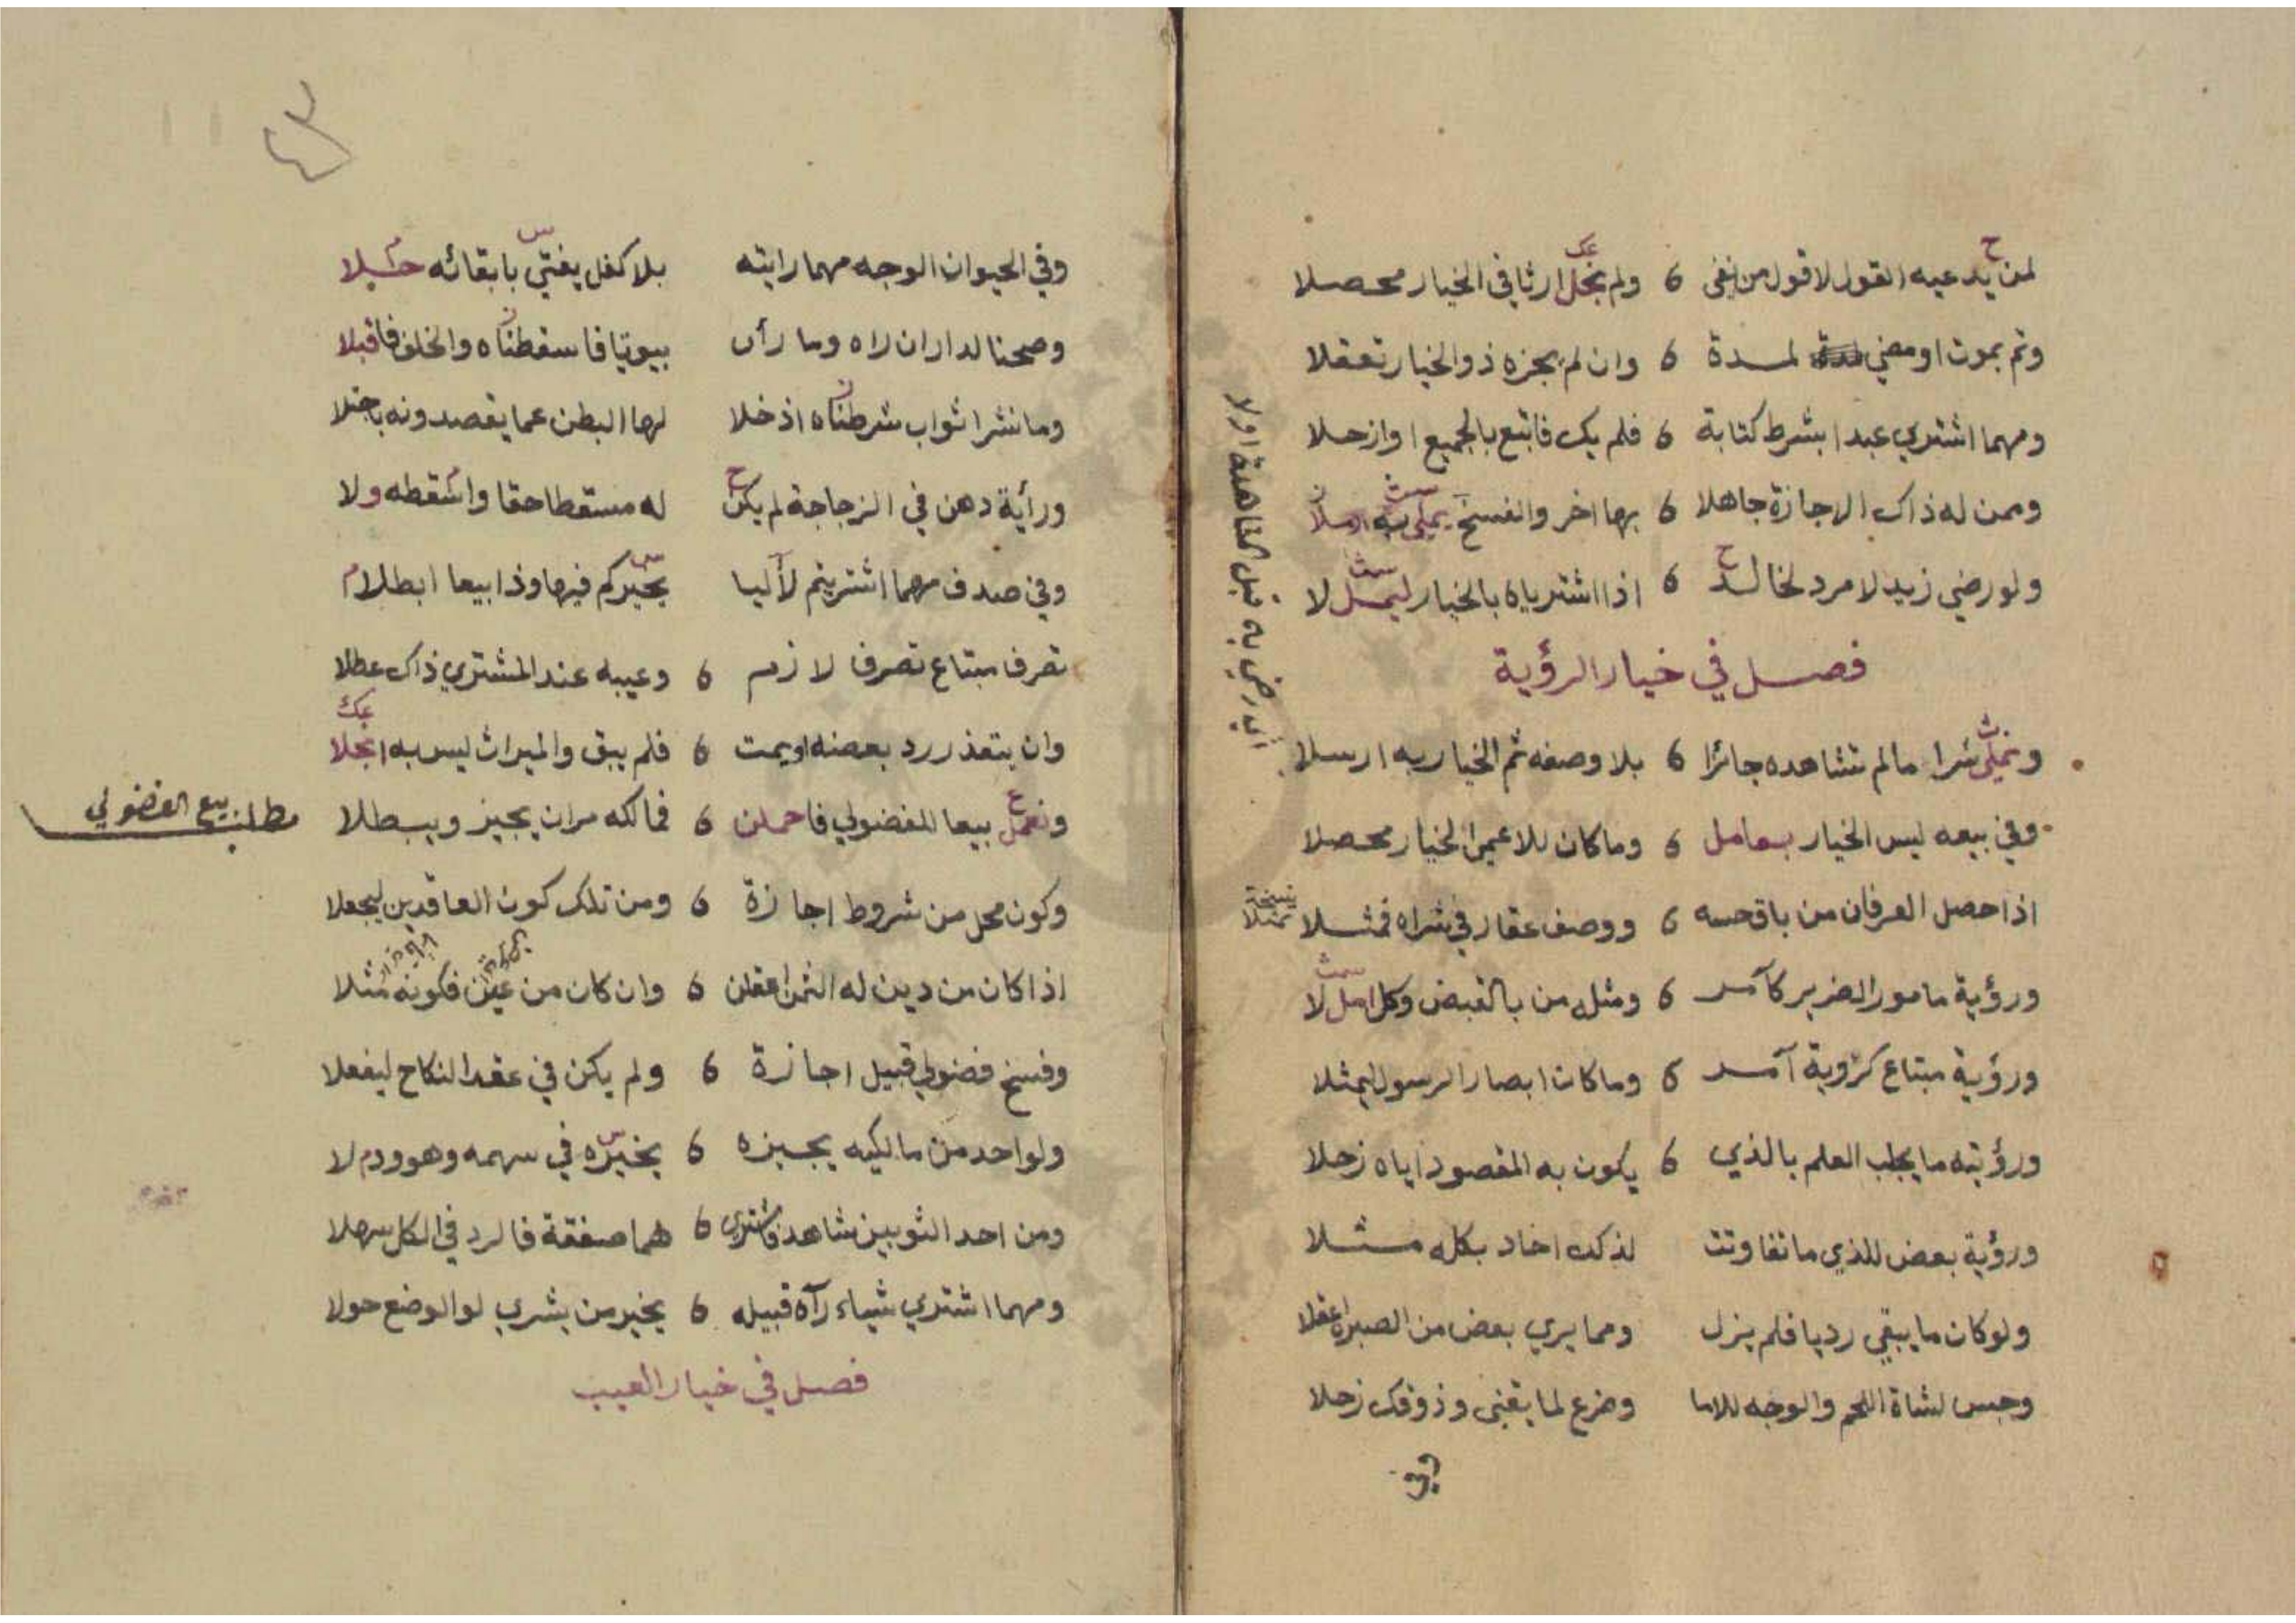 لمن يدعيه القول لا قول من نفى 6 ولم نخل ارثا في الخيار محصلا
وتم بموت او مضي لمدة 6 وان لم يجزه ذو الخيار تعقلا
ومهما اشتري عبدا بشرط كتابة 6 فلم يك فابتع بالجميع او ازحلا
وممن له ذاك الاجازة جاهلا 6 بها اخر والفسخ يملى به
ولو رضي زيد لا مرد لخالد 6 اذا اشترياه بالخيار ليمل لا
اي رضي به قبل المشاهدة اولا
فصل في خيار الرؤية
ونملي شرا مالم تشاهده جائزا 6 بلا وصفه ثم الخيار به ارسلا
وفي بيعه ليس الخيار بعامل 6 وما كان للاعمى الخيار محصلا
اذا حصل العرفان من باق حسه 6 ووصف عقار في شراه فمثلا
نسخة تمثلا
ورؤية مامور الضرير كآمر 6 ومثله من بالقبض وكل امل لا
ورؤية مبتاع كرؤية آمر 6 وما كان ابصار الرسول ليمثلا
ورؤيته ما يجلب العلم بالذي 6 يكون به المقصود اياه زحلا
ورؤية بعض للذي ما تفاوتت لذلك احاد بكله مثلا
ولو كان ما يبقى رديا فلم يزل ومما يري بعض من الصبرة اعقلا
وجس لشاة اللحم والوجه للاما وضرع لما يقنى وذوقك زحلا
وفي
وفي الحيوان الوجه مهما رايته بلا كفل يفتي بابقائه
وصححنا لدار ان راه وما رأى بيوتا فاسقطناه والخلف فاقبلا
وما نشر اثواب شرطناه اذ خلا لها البطن عما يقصدونه باجتلا
ورأية دهن في الزجاجة لم يكن له مسقطا حقا واسقطه ولا
وفي صدف مهما اشتريتم لآليا يخيركم فيها وذا بيعا ابطلا
تصرف مبتاع تصرف لازم 6 وعيبه عند المشتري ذاك عطلا
وان يتعذر رد بعضه او يمت 6 فلم يبق والميراث ليس به انجلا
ونعمل بيعا للفضولي فاحملن 6 فمالكه مران يجيز ويبطلا
مطلب بيع الفضولي
وكون محل من شروط اجازة 6 ومن تلك كون العاقدين ليجعلا
اذا كان من دين له الثمن اعقلن 6 وان كان من عين فكونه مثلا
وفسخ فضولي قبيل اجازة 6 ولم يكن في عقد النكاح ليفعلا
ولو احد من مالكيه يجيزه 6 يخيره في سهمه وهو ودم لا
ومن احد الثوبين شاهد فاشترى 6 هما صفقة فالرد في الكل سهلا
ومهما اشتري شياء رآه قبيله 6 يخير من يشري لو الوضع حولا
فصل في خيار العيب